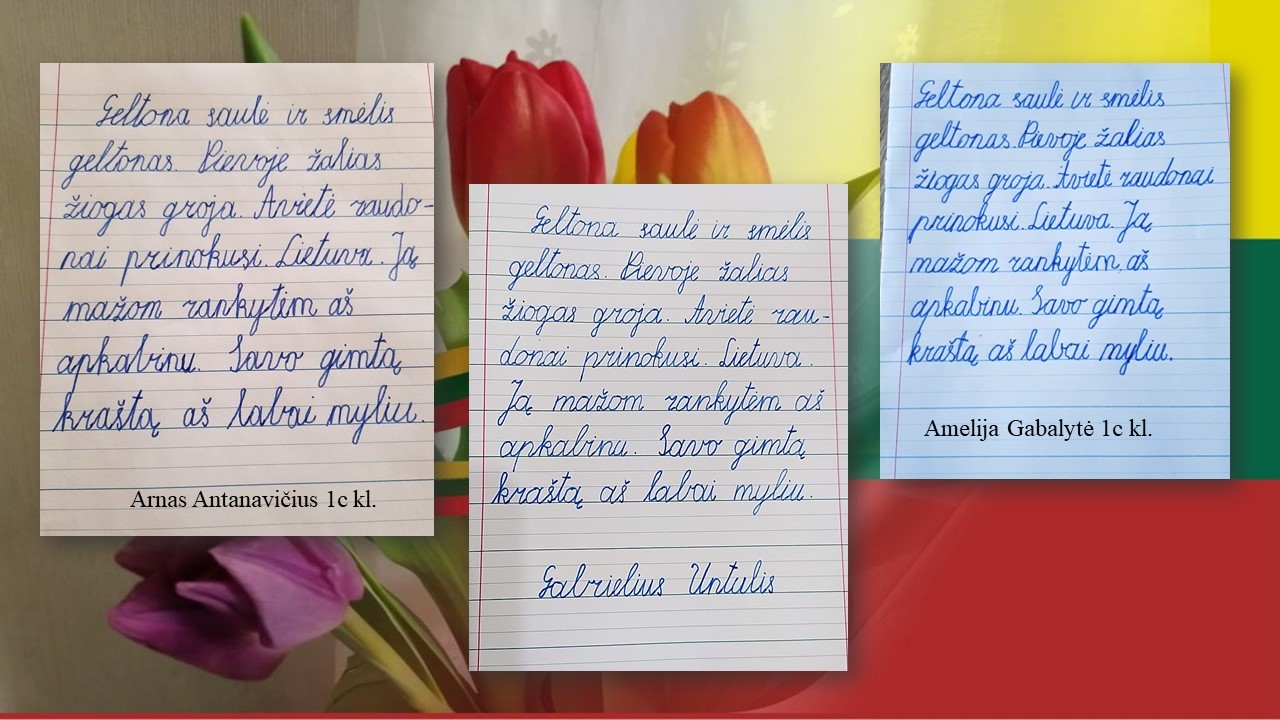 Geltona saulė ir smėlis
geltonas. Pievoje žalias
žiogas groja. Avietė raudo-
nai prinokusi. Lietuva. Ją
mažom rankytėm aš
apkabinu. Savo gimtą
kraštą aš labai myliu.
Arnas Antanavičius 1c kl.
Geltona saulė ir smėlis
geltonas. Pievoje žalias
žiogas groja. Avietė rau-
donai prinokusi. Lietuva.
Ją mažom rankytėm aš
apkabinu. Savo gimtą
kraštą aš labai myliu.
Gabrielius Untulis
Geltona saulė ir smėlis
geltonas. Pievoje žalias
žiogas groja. Avietė raudonai
prinokusi. Lietuva. Ją
mažom rankytėm aš
apkabinu. Savo gimtą
kraštą aš labai myliu.
Amelija Gabalytė 1c kl.